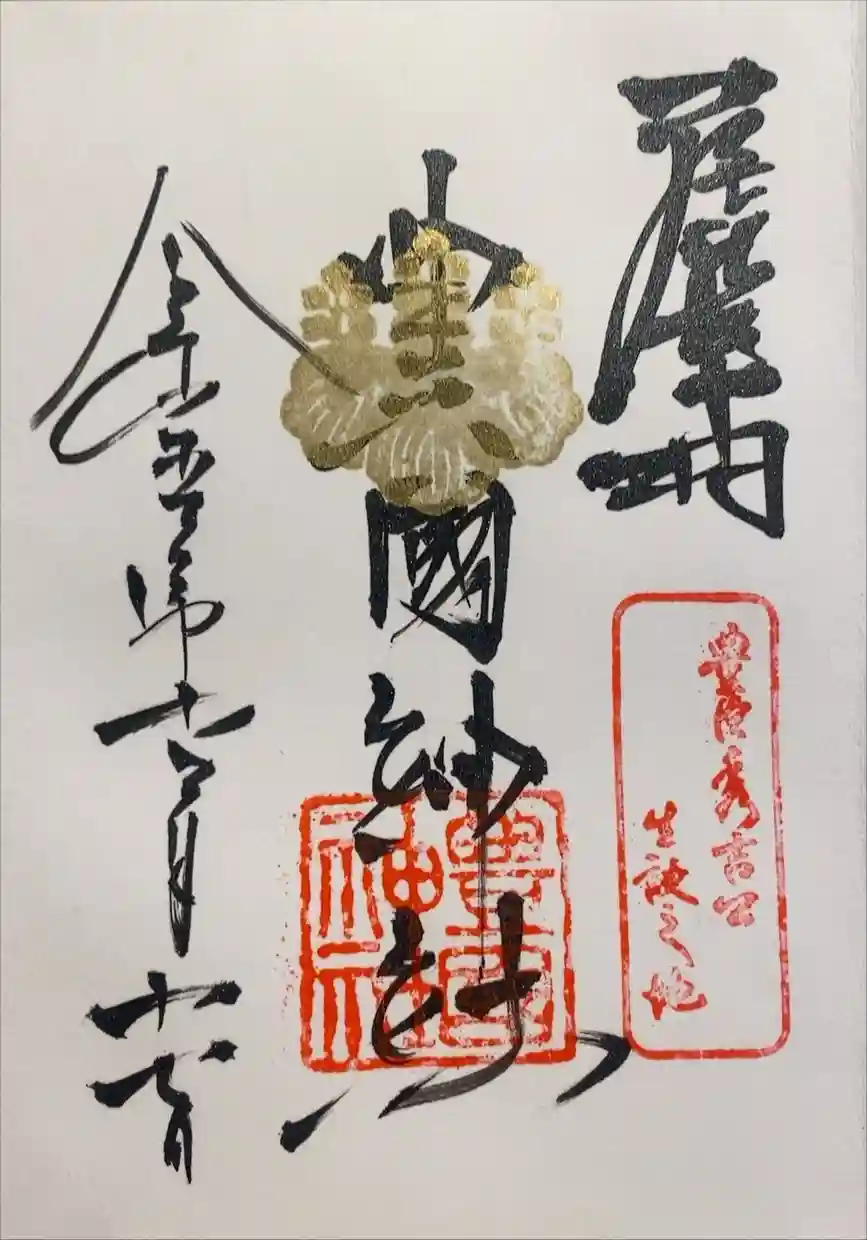 尾張中村
豊臣秀吉公
生誕之地
豊國神社
豊國
神社
令和五年